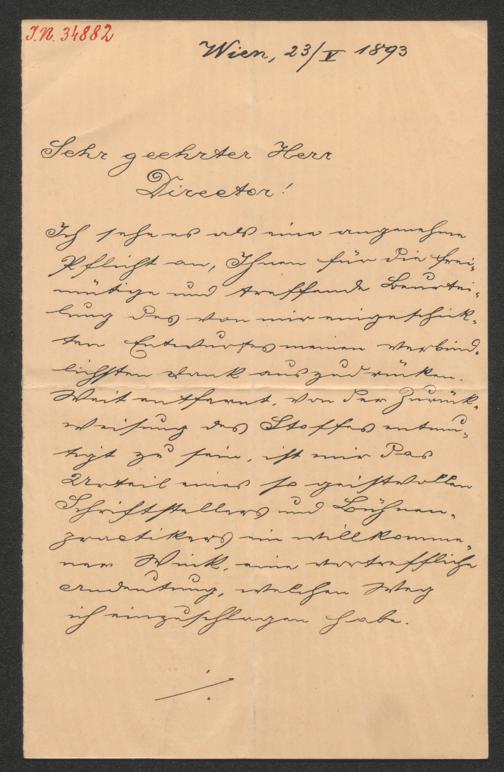 I.N. 34882
Wien, 23/V 1893
Sehr geehrter Herr
Director!
Ich sehe es als eine angenehme
Pflicht an, Ihnen für die frei-
mütige und treffende Beurtei-
lung des von mir eingeschick-
ten Entwurfes meinen verbind-
lichsten Dank auszudrücken.
Weit entfernt, von der Zurück-
weisung des Stoffes entmu-
tigt zu sein, ist mir das
Urteil eines so geistvollen
Schriftstellers und Bühnen-
practikers ein willkomme-
ner Wink, eine vortreffliche
Andeutung, welchen Weg
ich einzuschlagen habe.
./.